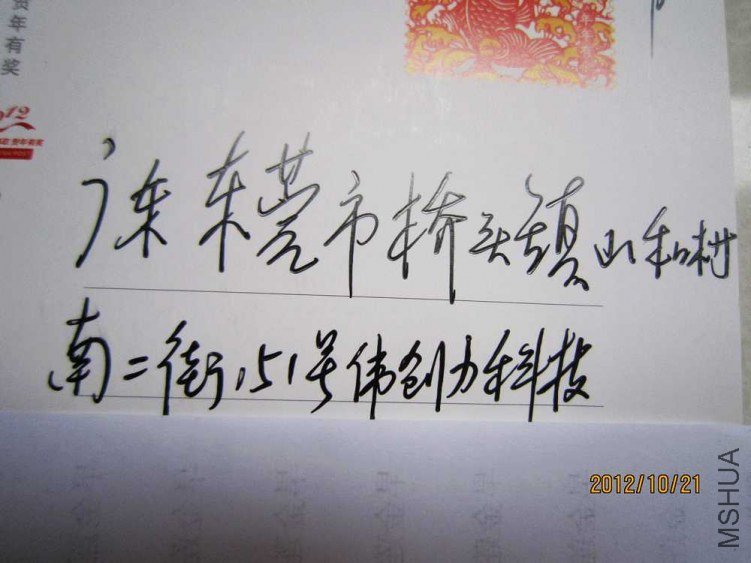 贺年有奖
2012
广东东莞市桥头镇山和村
南二街151号伟创力科技
2012/10/21
MSHUA